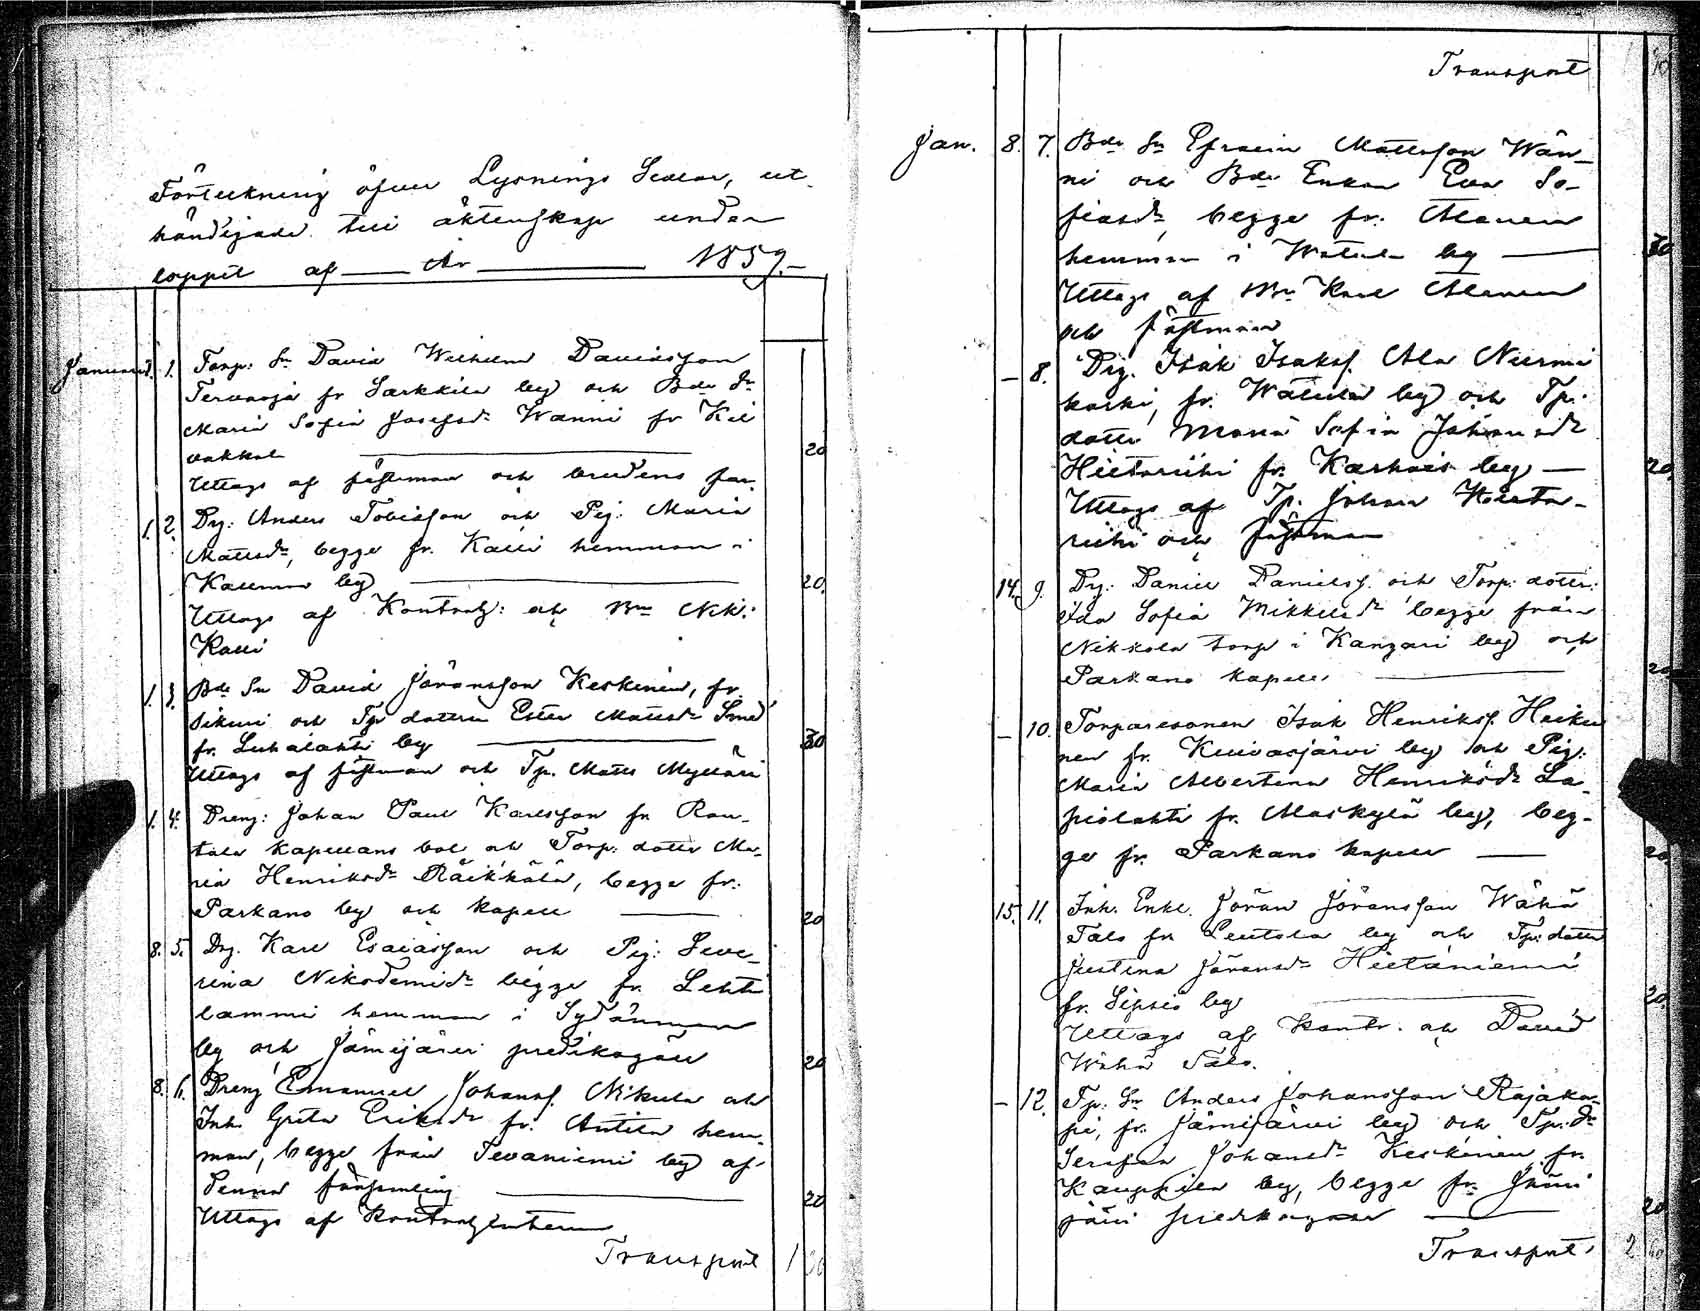 Förteckning öfver Lysnings Sedlar, ut-
händigade till äktenskap under
loppet af — År — 1859.—
Januarii 1. 1. Torp. Sn David Wilhelm Davidsson
Tervasja fr Sarkkila by och Bde Dr
Maria Sofia Josefsdr Wänni fr Kil
vakkal — 20
Uttogs af fästman och brudens far.
1. 2. Drg: Anders Tobiasson och Pig: Maria
Mattsdr, begge fr. Kalli hemman i
Kallenna by — 20.
Uttogs af Kontrah: och Bm Nik:
Kalli
1. 3. Bde Sn David Jöransson Keskinen, fr.
Sikuri och Tp dottren Ester Mattsdr Smed
fr. Luhalahti by — 30
Uttogs af fästman och Tp. Matts Mylläri
1. 4. Dreng: Johan Paul Karlsson fr. Ran-
tala Kapellans bol och Torp: dotter Ma-
ria Henriksdr Räikkälä, begge fr.
Parkano by och Kapell — 20
8. 5. Drg. Karl Esaiasson och Pig: Seve-
rina Nikodemidr begge fr. Lehti
lammi hemman i Sydänmaa
by och Jämijärvi predikogäll 20
8. 6. Dreng Emanuel Johansf. Nikula och
Inh. Greta Eriksdr fr. Antila hem-
man, begge från Tevaniemi by af
denna församling — 20
Uttogs af Kontrahenterne
Transport 1 30
Transport
Jan. 8. 7. Bde Sn Efraim Mattsson Wän-
ni och Bde Enkan Eva So-
fiasdr, begge fr. Alanen
hemman i Watula by — 30
Uttogs af Bm Karl Alanen
och fästman
— 8. Drg. Isak Isaksf. Ala Nurmi
koski, fr. Watula by och Tp.
dotter Maria Sofia Johansdr
Hietariihi fr. Karhois by — 20.
Uttogs af Tp. Johan Hieta-
riihi och fästman
14. 9. Drg: Daniel Danielsf. och Torp: dotter:
Ida Sofia Mikkelsdr begge från
Nikkola torp i Kanzari by och
Parkano Kapell — 20
— 10. Torparesonen Isak Henriksf. Heiki
nen fr. Kuivasjärvi by och Pig:
Maria Albertina Henriksdr La-
piolahti fr. Alaskylä by, beg-
ge fr. Parkano Kapell — 20
15. 11. Inh. Enkl. Jöran Jöransson Wähä
Talo fr. Leutola by och Tp: dotter
Justina Jöransdr Hietaniemi
fr. Sipsiö by — 20.
Uttogs af Kontr. och David
Wähä Talo.
— 12. Tp: Sn Anders Johansson Rajaka-
pi, fr. Jämijärvi by och Tp: dr
Serafia Johansdr Keskinen fr.
Kauppila by, begge fr. Jämi
järvi predikogäll — 20
Transport 2